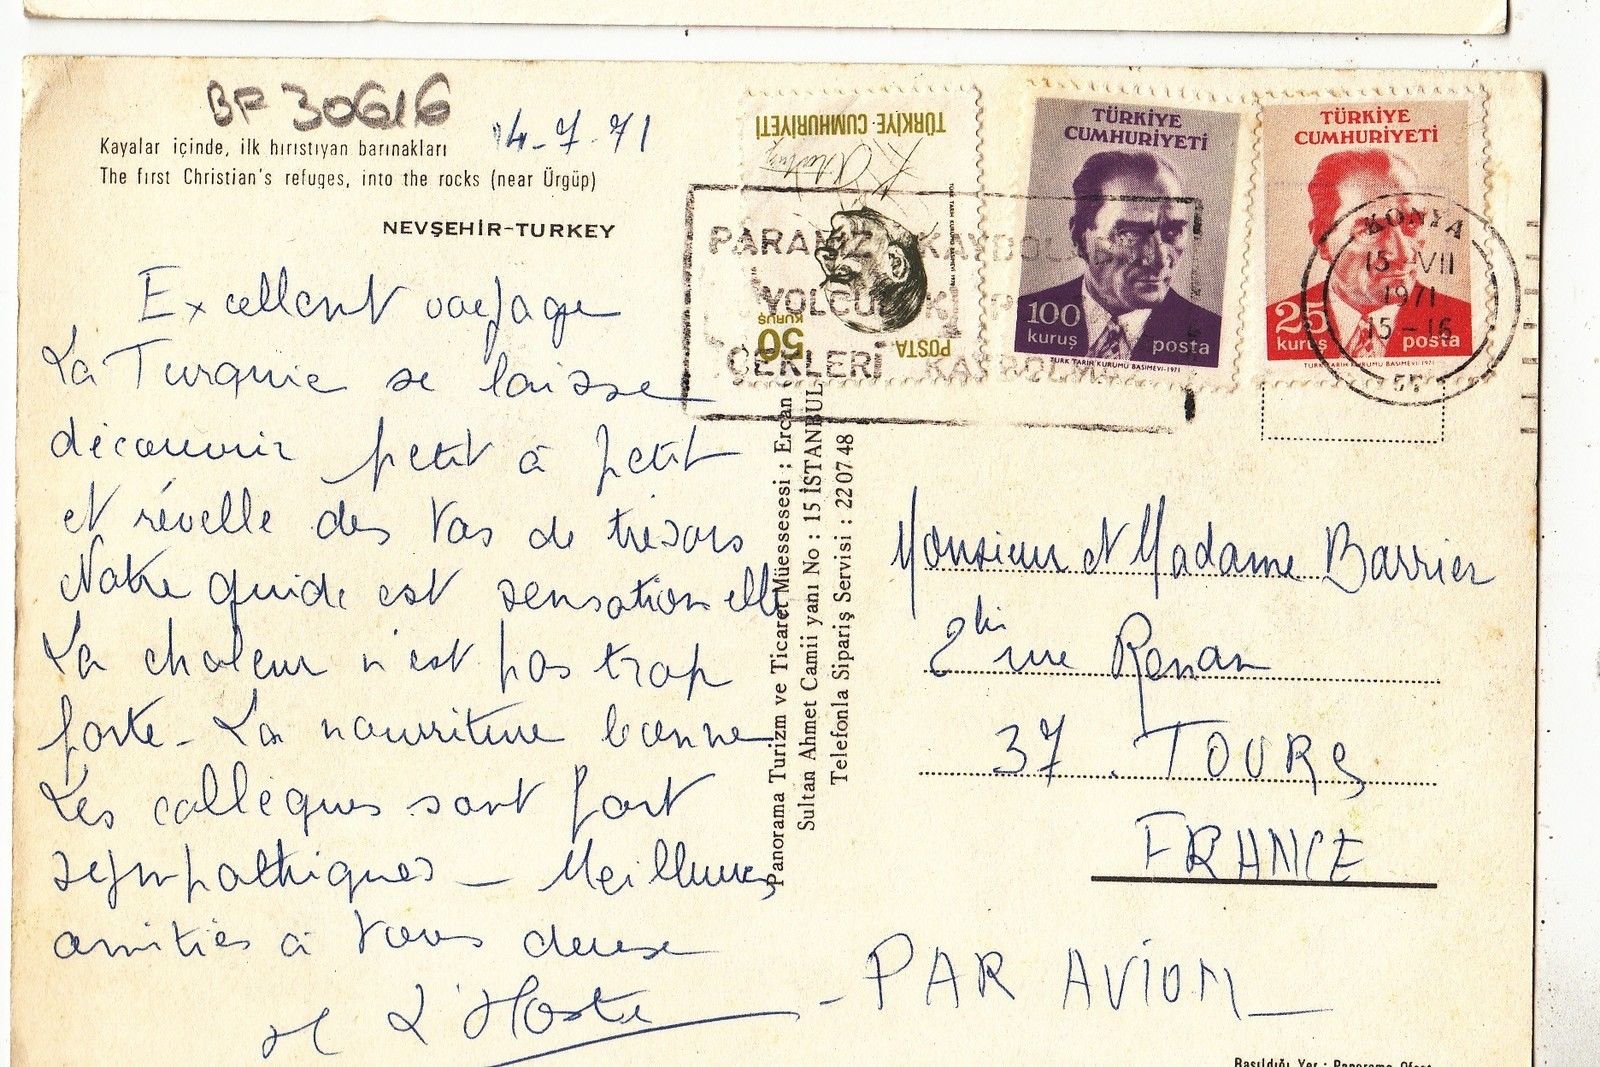 BF 30616
Kayalar içinde, ilk hıristıyan barınakları
The first Christian's refuges, into the rocks (near Ürgüp)
NEVŞEHİR-TURKEY
4-7-71
Excellent voyage
La Turquie se laisse
découvrir petit à petit
et révelle des tas de trésors
Notre guide est sensationelle
La chaleur n'est pas trop
forte - La nourriture bonne
Les collègues sont fort
sympathiques - Meilleures
amitiés à vous deux
L'Hoste
TÜRKİYE CUMHURİYETİ
50
KURUŞ
POSTA
TÜRKİYE
CUMHURİYETİ
100
kuruş
posta
TÜRK TARİH KURUMU BASIMEVİ-1971
TÜRKİYE
CUMHURİYETİ
25
kuruş
posta
TÜRK TARİH KURUMU BASIMEVİ-1971
PARANIZ KAYBOLABİ
YOLCULUK
ÇEKLERİ KAYBOLM
KONYA
15-VII
1971
15-16
Panorama Turizm ve Ticaret Müessesesi : Ercan
Sultan Ahmet Camii yanı No : 15 İSTANBUL
Telefonla Sipariş Servisi : 22 07 48
Monsieur et Madame Barrier
rue Renan
37. TOURS
FRANCE
- PAR AVION
Basıldığı Yer : Panorama Ofset